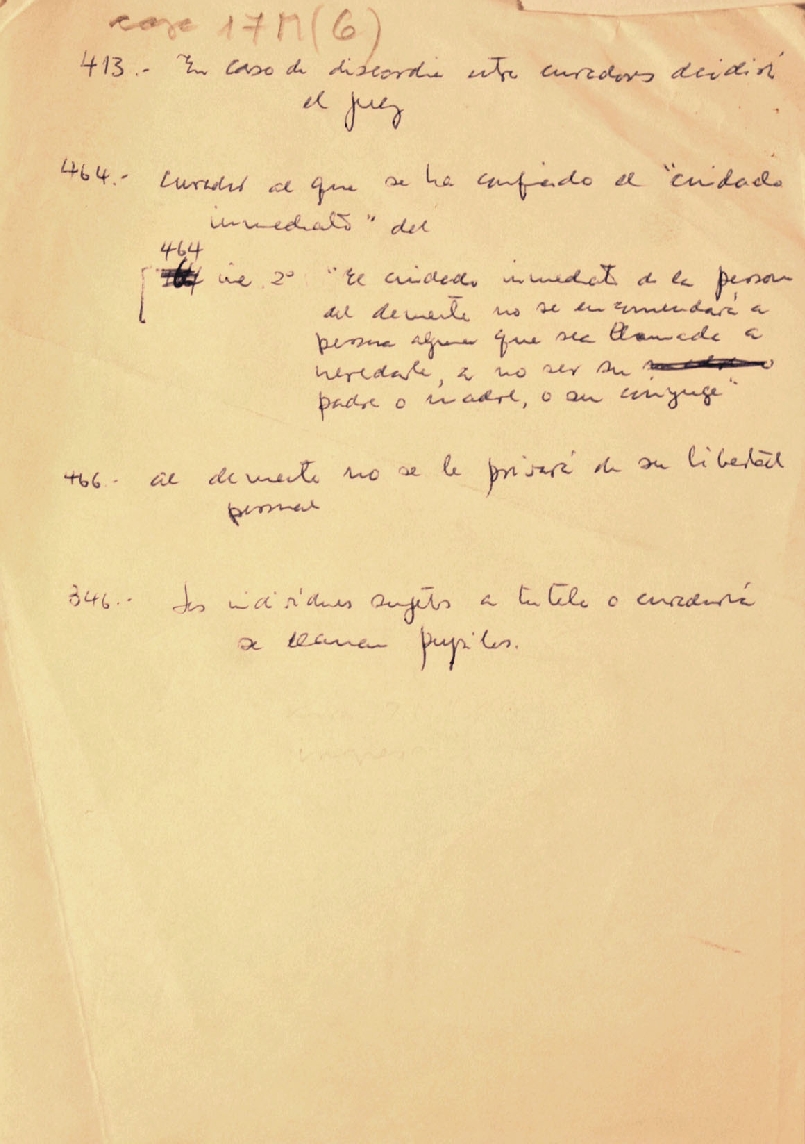 caso 17M(6)
413.- En caso de discordia entre curadores decidirá
el juez
464.- Curador al que se ha confiado el "cuidado
inmediato" del
464
inc 2º "El cuidado inmediato de la persona
del demente no se encomendará a
persona alguna que sea llamada a
heredarle, a no ser su
padre o madre, o su cónyuge"
466.- al demente no se le privará de su libertad
personal
346.- Los individuos sujetos a tutela o curaduría
se llaman pupilos.